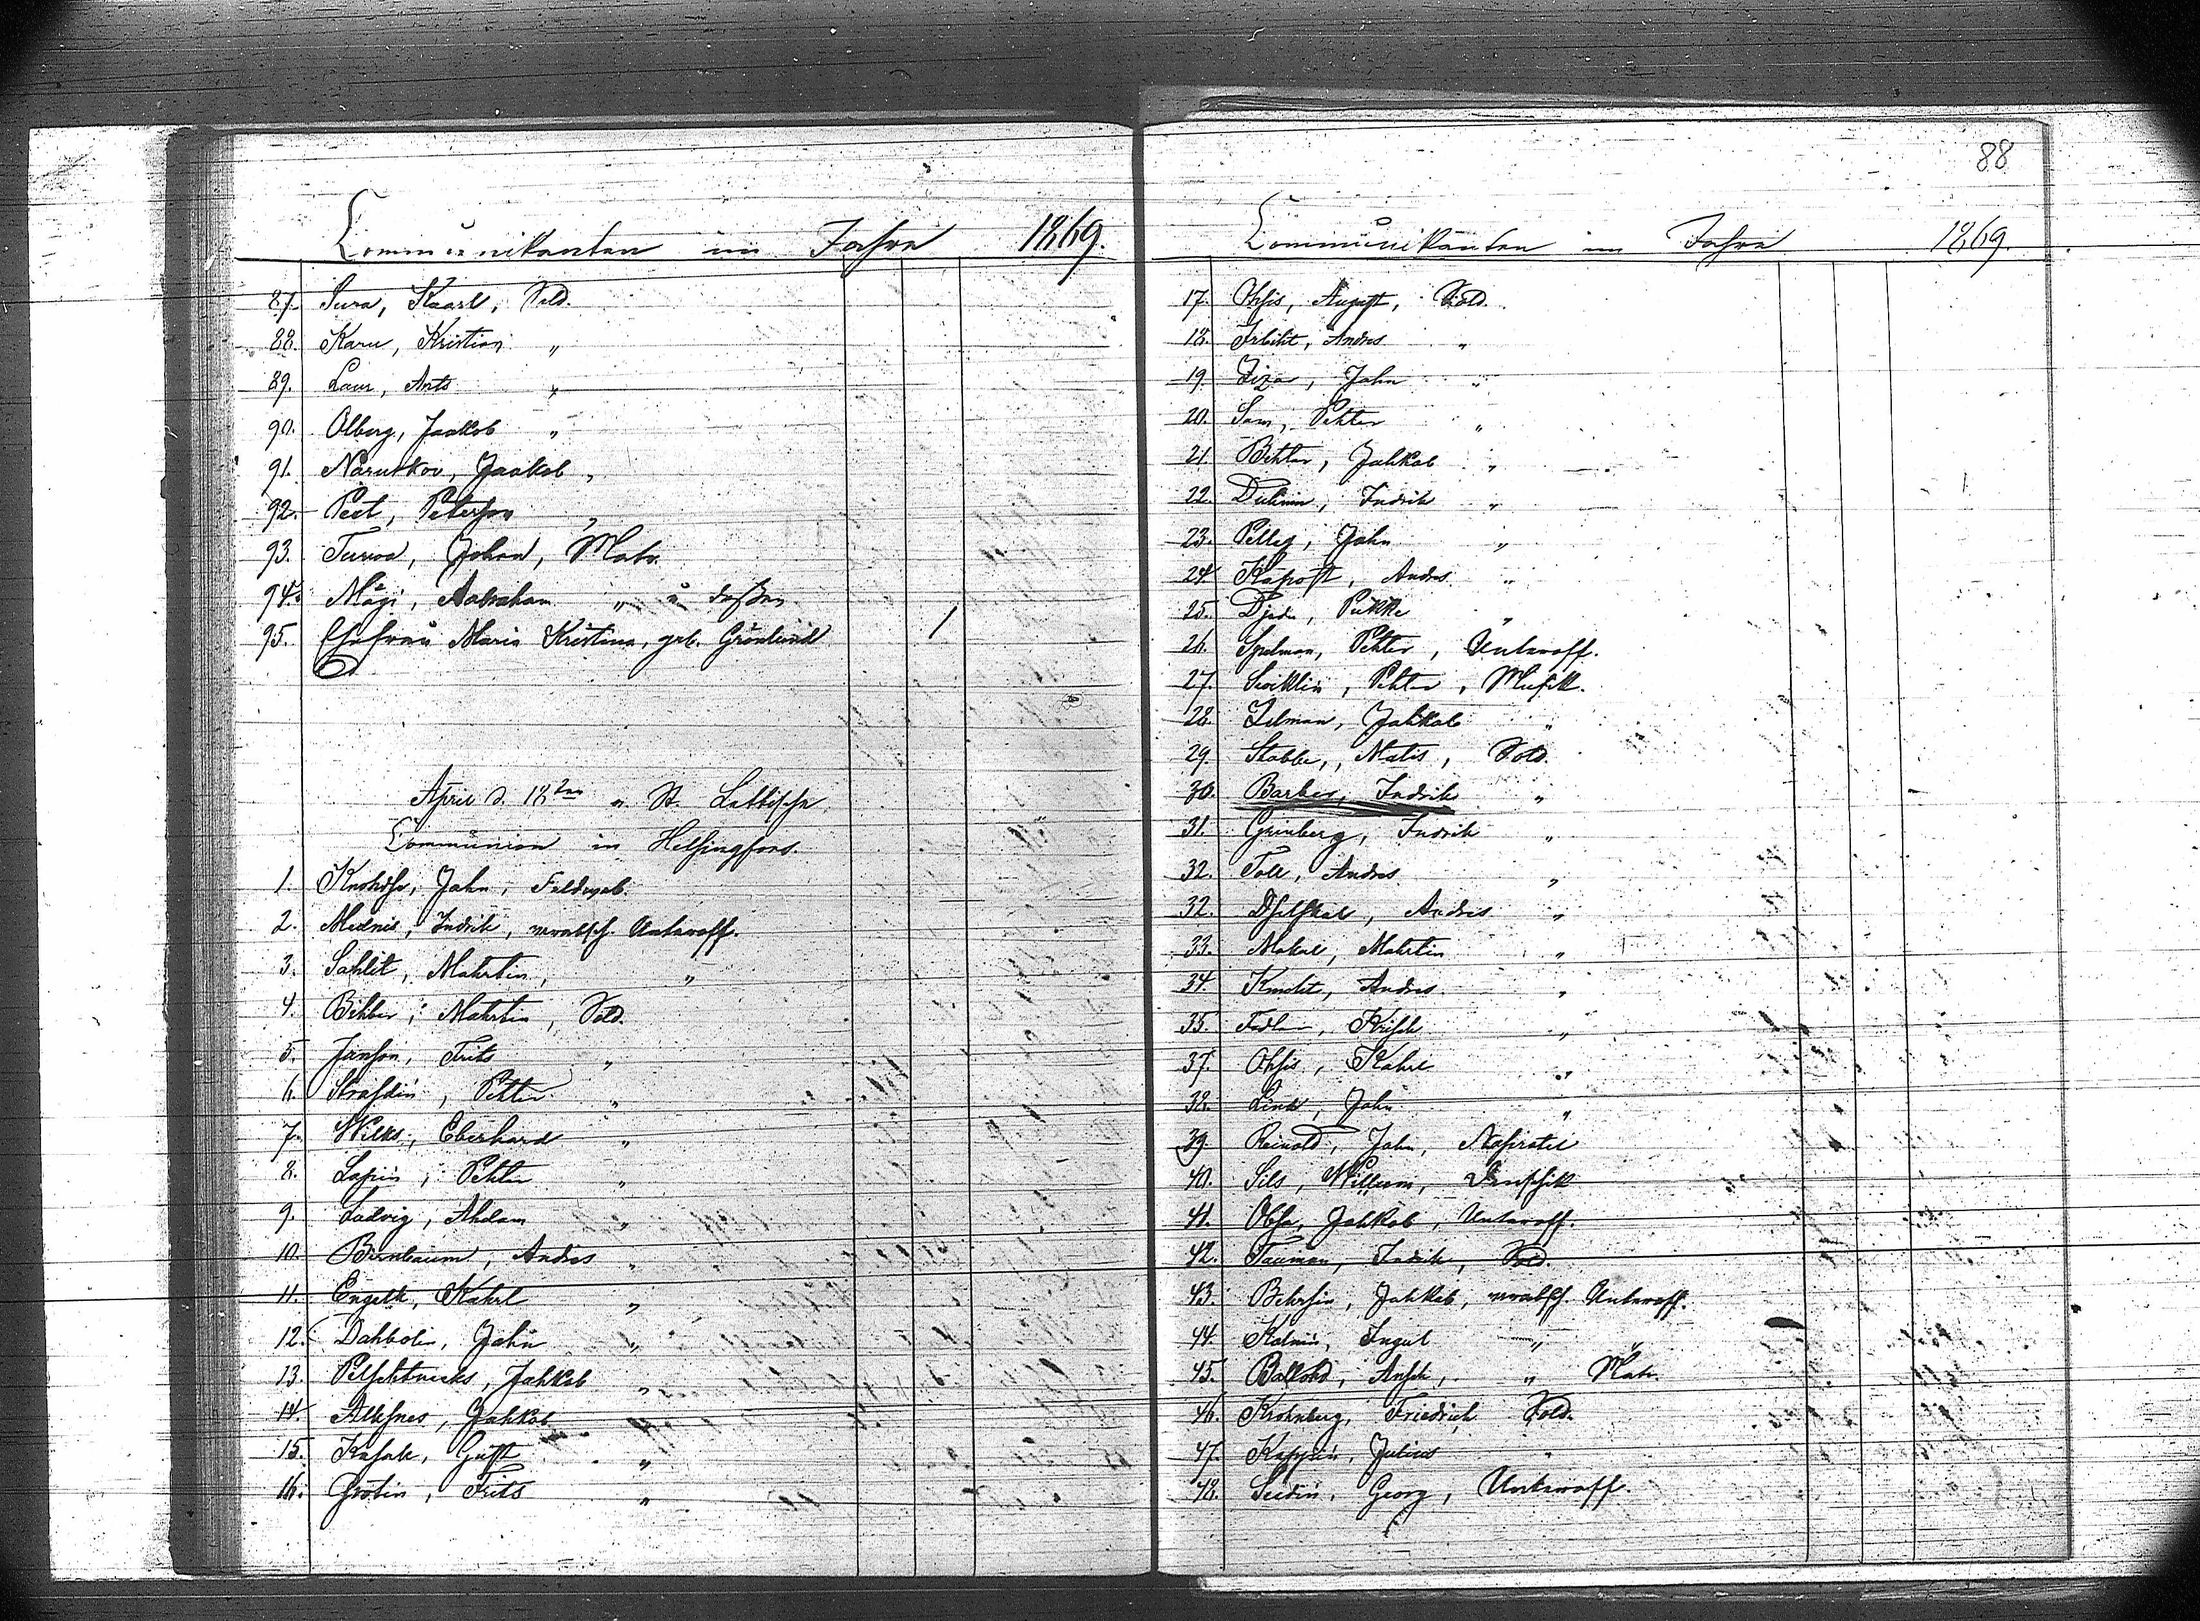 Communikanten im Jahre 1869.
87. Sura, Kaarl, Sold.
88. Karu, Kristian "
89. Laur, Ants "
90. Olberg, Jaakob "
91. Narutkov, Jaakob "
92. Peet, Peterson "
93. Turwa, Johan, Matr.
94. Mägi, Aabraham " u. dessen
95. Ehefrau Maria Kristina, geb. Grönlund 1
April d. 18ten a. St. Lettische
Communion in Helsingfors.
1. Jahn, Feldweb.
2. Mednis, Indrik, verabsch. Unteroff.
3. Sahlit, Mahrtin, "
4. Mahrtin, Sold.
5. Janson, Frits "
6. Strasdin, Pehter "
7. Wilks, Eberhard "
8. Lapin, Pehter "
9. Ludvig, Ahdam "
10. Birnbaum, Andres "
11. Engelk, Kahrl "
12. Dahbolin, Jahn "
13. Jahkob "
14. Alksnes, Jahkob "
15. Kasak, Gust "
16. Grotin, Frits "
88
Communikanten im Jahre 1869.
17. Ohsis, August, Sold.
18. Irbikt, Andres "
19. Jahn "
20. Sam, Pehter "
21. Jahkob "
22. Indrik "
23. Jahn "
24. Kapost, Andres "
25. "
26. Spelman, Pehter, Unteroff.
27. Pehter, Musik.
28. Zelman, Jahkob "
29. Stabbe, Matis, Sold.
30. Barber, Indrik "
31. Grinberg, Indrik "
32. Andres "
32. Andres "
33. Makar, Mahrtin "
34. Andres "
35. Krisch "
37. Ohsis, Kahrl "
38. Link, Jahn "
39. Reinold, Jahn,
40. Sils, Willum,
41. Jahkob, Unteroff.
42. Tauman, Indrik, Sold.
43. Behrsin, Jahkob, verabsch. Unteroff.
44. Kalnin, Ingul " "
45. Ballohd, Ansch, " Matr.
46. Krohnberg, Friedrich Sold.
47. Julius "
48. Georg, Unteroff.